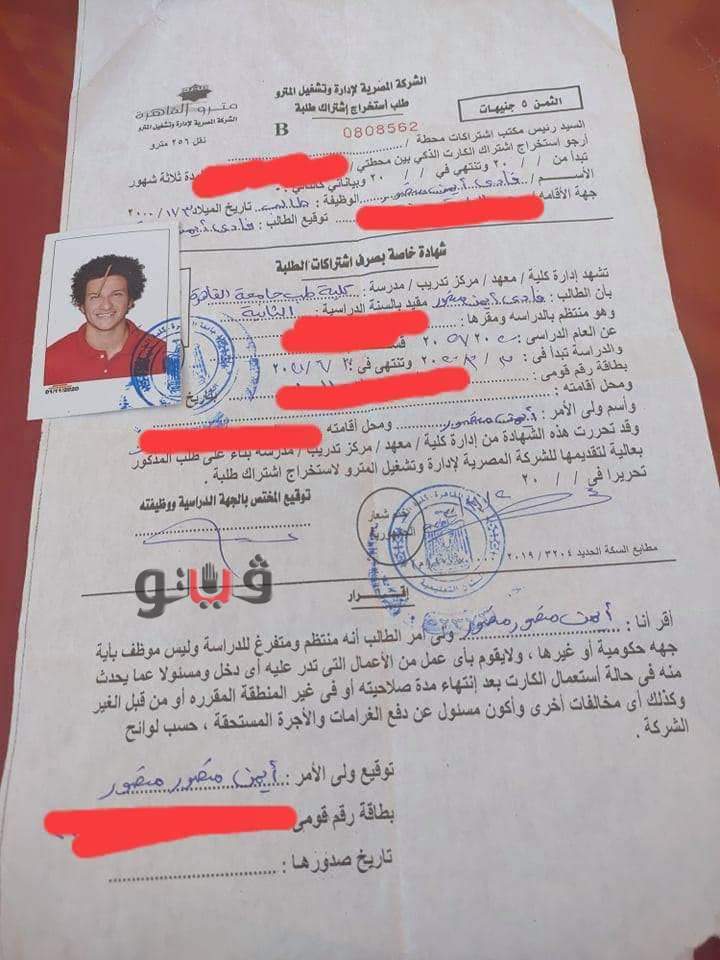 الشركة المصرية لإدارة وتشغيل المترو
طلب أستخراج إشتراك طلبة
الثمن ٥ جنيهات
مترو القاهرة
الشركة المصرية لإدارة وتشغيل المترو
نقل ٢٥٦ مترو
B
0808562
السيد رئيس مكتب إشتراكات محطة /
أرجو استخراج اشتراك الكارت الذكي بين محطتي / لمدة ثلاثة شهور
تبدأ من / / ٢٠ وتنتهى في / / ٢٠ وبياناتي كالتالي :
الأســم / فادى أيمن منصور الوظيفة : طالب تاريخ الميلاد
جهة الأقامه توقيع الطالب : فادى أيمن
شهادة خاصة بصرف اشتراكات الطلبة
تشهد إدارة كلية / معهد / مركز تدريب / مدرسة : كلية طب جامعة القاهرة
بأن الطالب : فادى أيمن منصور مقيد بالسنة الدراسية : الثانية
وهو منتظم بالدراسه ومقرها :
عن العام الدراسى
والدراسة تبدأ فى : وتنتهى فى :
بطاقة رقم قومى بتاريخ
ومحل أقامته :
وأسم ولى الأمر : أيمن منصور ومحل أقامته
وقد تحررت هذه الشهادة من إدارة كلية / معهد / مركز تدريب / مدرسة بناء على طلب المذكور
بعالية لتقديمها للشركة المصرية لإدارة وتشغيل المترو لاستخراج اشتراك طلبة .
تحريرا فى / / ٢٠
توقيع المختص بالجهة الدراسية ووظيفته
شعار
مطابع السكة الحديد ٣٢٠٤ / ٢٠١٩
ڤيتو
إقــرار
أقر أنا : أيمن منصور منصور ولى أمر الطالب أنه منتظم ومتفرغ للدراسة وليس موظف بأية
جهه حكومية أو غيرها ، ولايقوم بأى عمل من الأعمال التى تدر عليه أى دخل ومسئولا عما يحدث
منه فى حالة أستعمال الكارت بعد إنتهاء مدة صلاحيته أو فى غير المنطقة المقرره أو من قبل الغير
وكذلك أى مخالفات أخرى وأكون مسئول عن دفع الغرامات والأجرة المستحقة ، حسب لوائح
الشركة .
توقيع ولى الأمر : أيمن منصور منصور
بطاقة رقم قومى
تاريخ صدورها :
01/11/2020